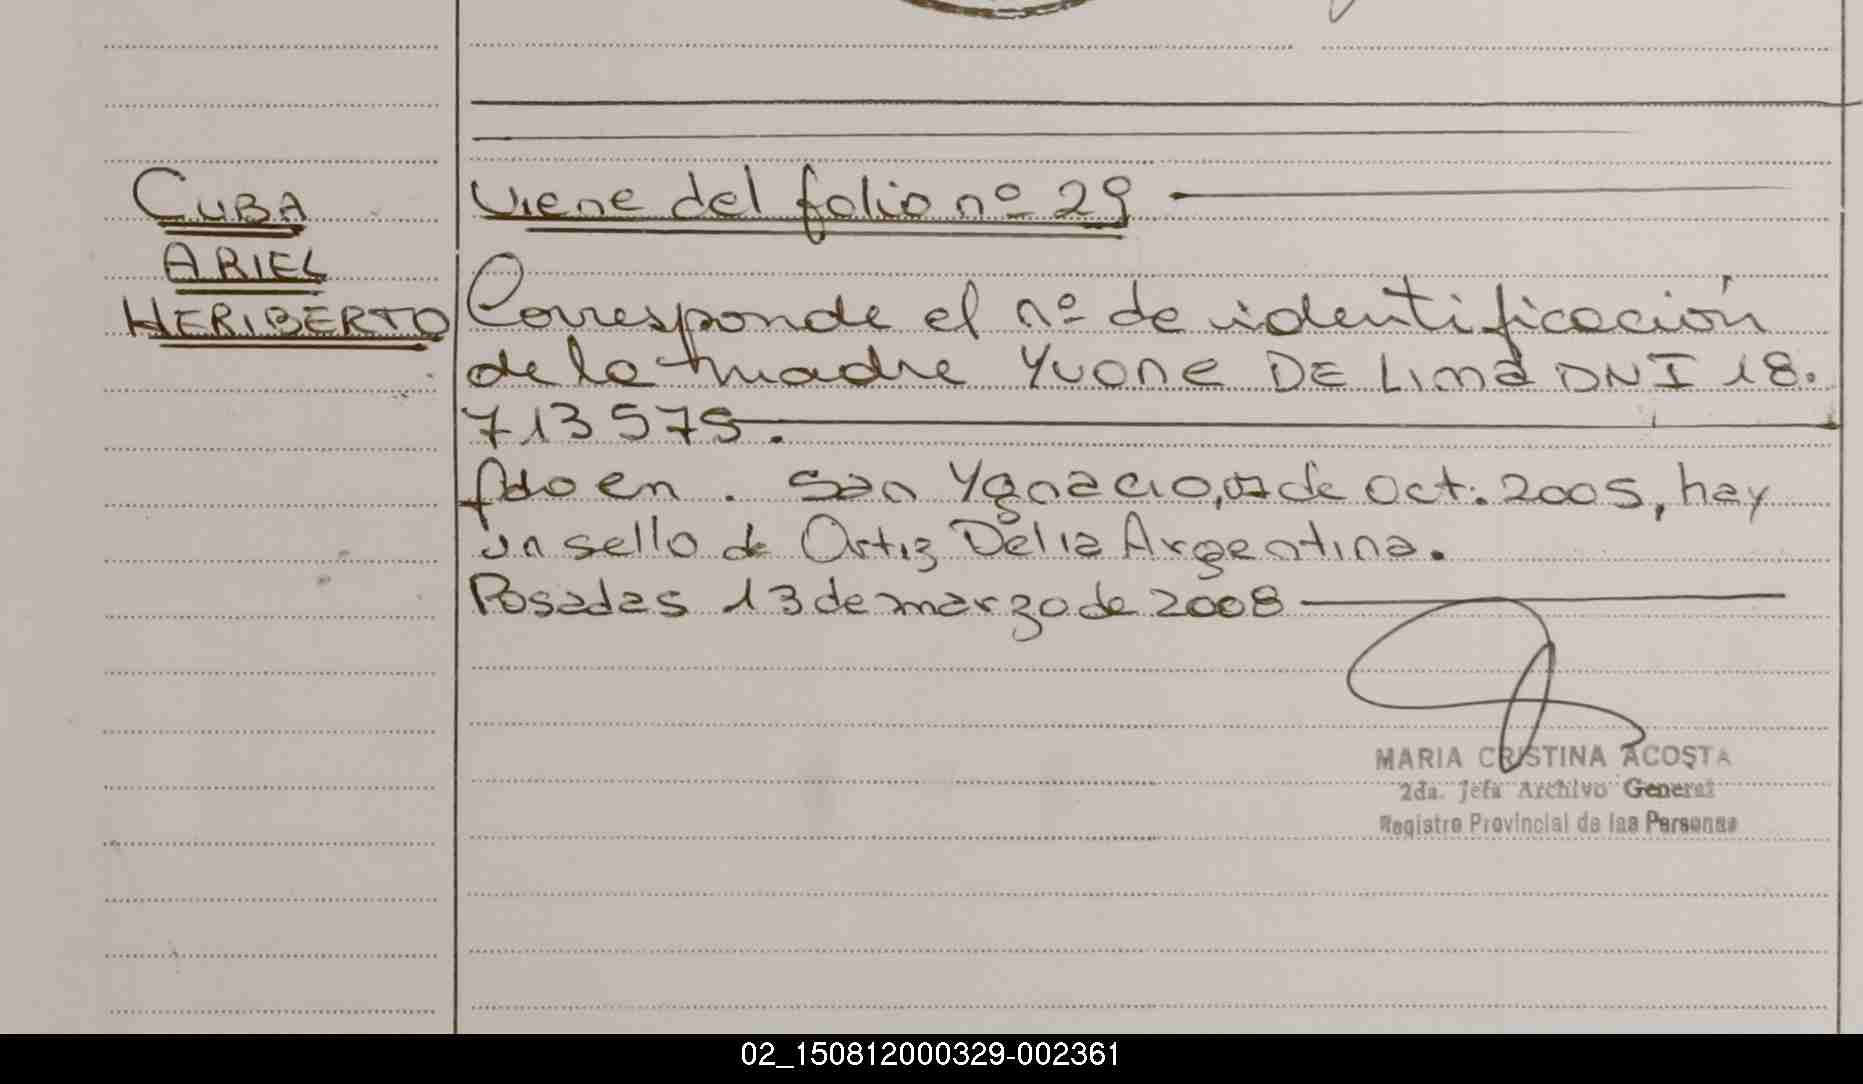 CUBA
ARIEL
HERIBERTO
Viene del folio nº 29
Corresponde el nº de identificación
de la madre Yvone DE Lima DNI 18.
713575.
fdo en. San Ygnacio, 07 de Oct. 2005, hay
un sello de Ortiz Delia Argentina.
Posadas 13 de marzo de 2008
MARIA CRISTINA ACOSTA
2da. Jefa Archivo General
Registro Provincial de las Personas
02_150812000329-002361